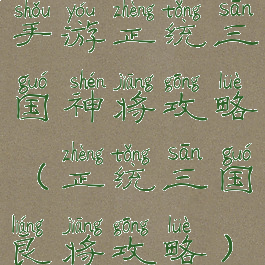 shǒu yóu zhèng tǒng sān
手游正统三
guó shén jiāng gōng lüè
国神将攻略
zhèng tǒng sān guó
（正统三国
liáng jiāng gōng lüè
良将攻略）